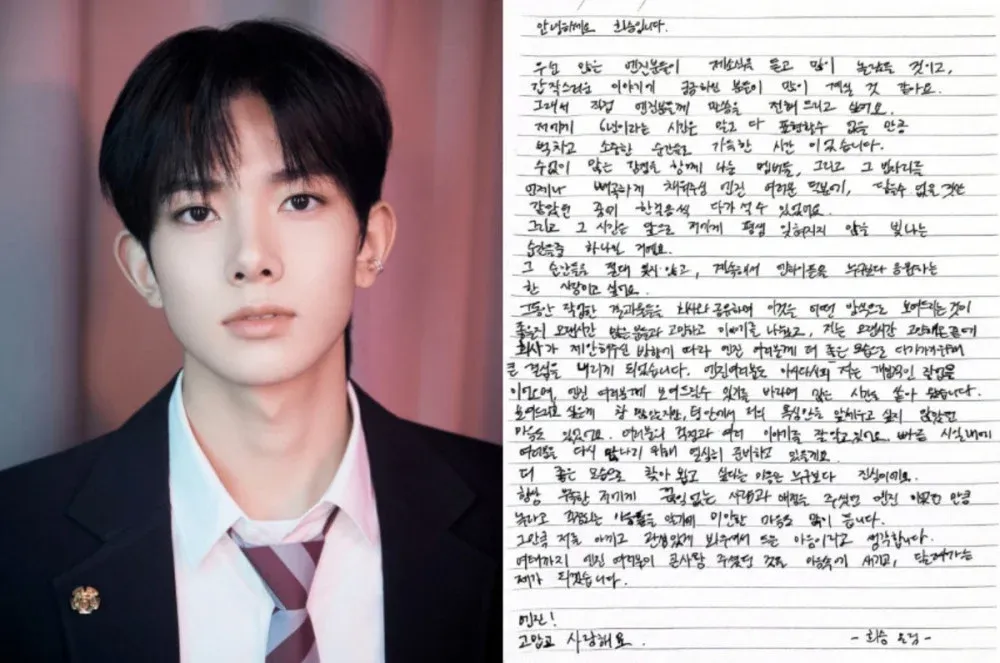 안녕하세요 희승입니다.
우선 많은 엔진분들이 제소식을 듣고 많이 놀랐을 것이고,
갑작스러운 이야기에 궁금하신 분들이 많이 계실 것 같아요.
그래서 직접 엔진분들께 말씀을 전해 드리고 싶어요.
저에게 6년이라는 시간은 말로 다 표현할수 없을 만큼
벅차고 소중한 순간들로 가득한 시간 이었습니다.
수없이 많은 감정을 함께 나눈 멤버들, 그리고 그 빈자리를
언제나 빼곡하게 채워주신 엔진 여러분 덕분에, 닿을수 없을 것만
같았던 꿈에 한걸음씩 다가설 수 있었어요.
그리고 그 시간은 앞으로 저에게 평생 잊혀지지 않을 빛나는
순간들중 하나일 거에요.
그 순간들을 절대 잊지 않고, 계속해서 엔하이픈을 누구보다 응원하는
한 사람이고 싶어요.
그동안 작업한 결과물들을 회사와 공유하며 이것을 어떤 방식으로 보여드리는것이
좋을지 오랜시간 많은분들과 고민하고 이야기를 나누었고, 저는 오랜시간 고민해온끝에
회사가 제안해주신 방향에 따라 엔진 여러분께 더 좋은 모습으로 다가가기위해
큰 결심을 내리게 되었습니다. 엔진여러분도 아시다시피 저는 개인적인 작업물
이었으며, 엔진 여러분께 보여드릴수 있기를 바라며 많은 시간을 쏟아 왔습니다.
보여드리고 싶은게 참 많았지만, 팀 안에서 저의 욕심만을 앞세우고 싶지 않았던
마음도 있었어요. 여러분의 걱정과 여러 이야기를 잘 알고있어요. 빠른 시일내에
여러분을 다시 만나기 위해 열심히 준비하고 있을게요.
더 좋은 모습으로 찾아 뵙고 싶다는 마음은 누구보다 진심이에요.
항상 부족한 저에게 끝임 없는 사랑과 애정을 주셨던 엔진 이었던 만큼
놀라고 걱정되는 마음들을 알기에 미안한 마음도 많이 듭니다.
그만큼 저를 아끼고 관심있게 봐주셔서 드는 마음이라고 생각합니다.
여태까지 엔진 여러분이 큰사랑 주셨던 것을 마음속에 새기고, 달려가는
제가 되겠습니다.
엔진!
고맙고 사랑해요.
- 희승 올림 -